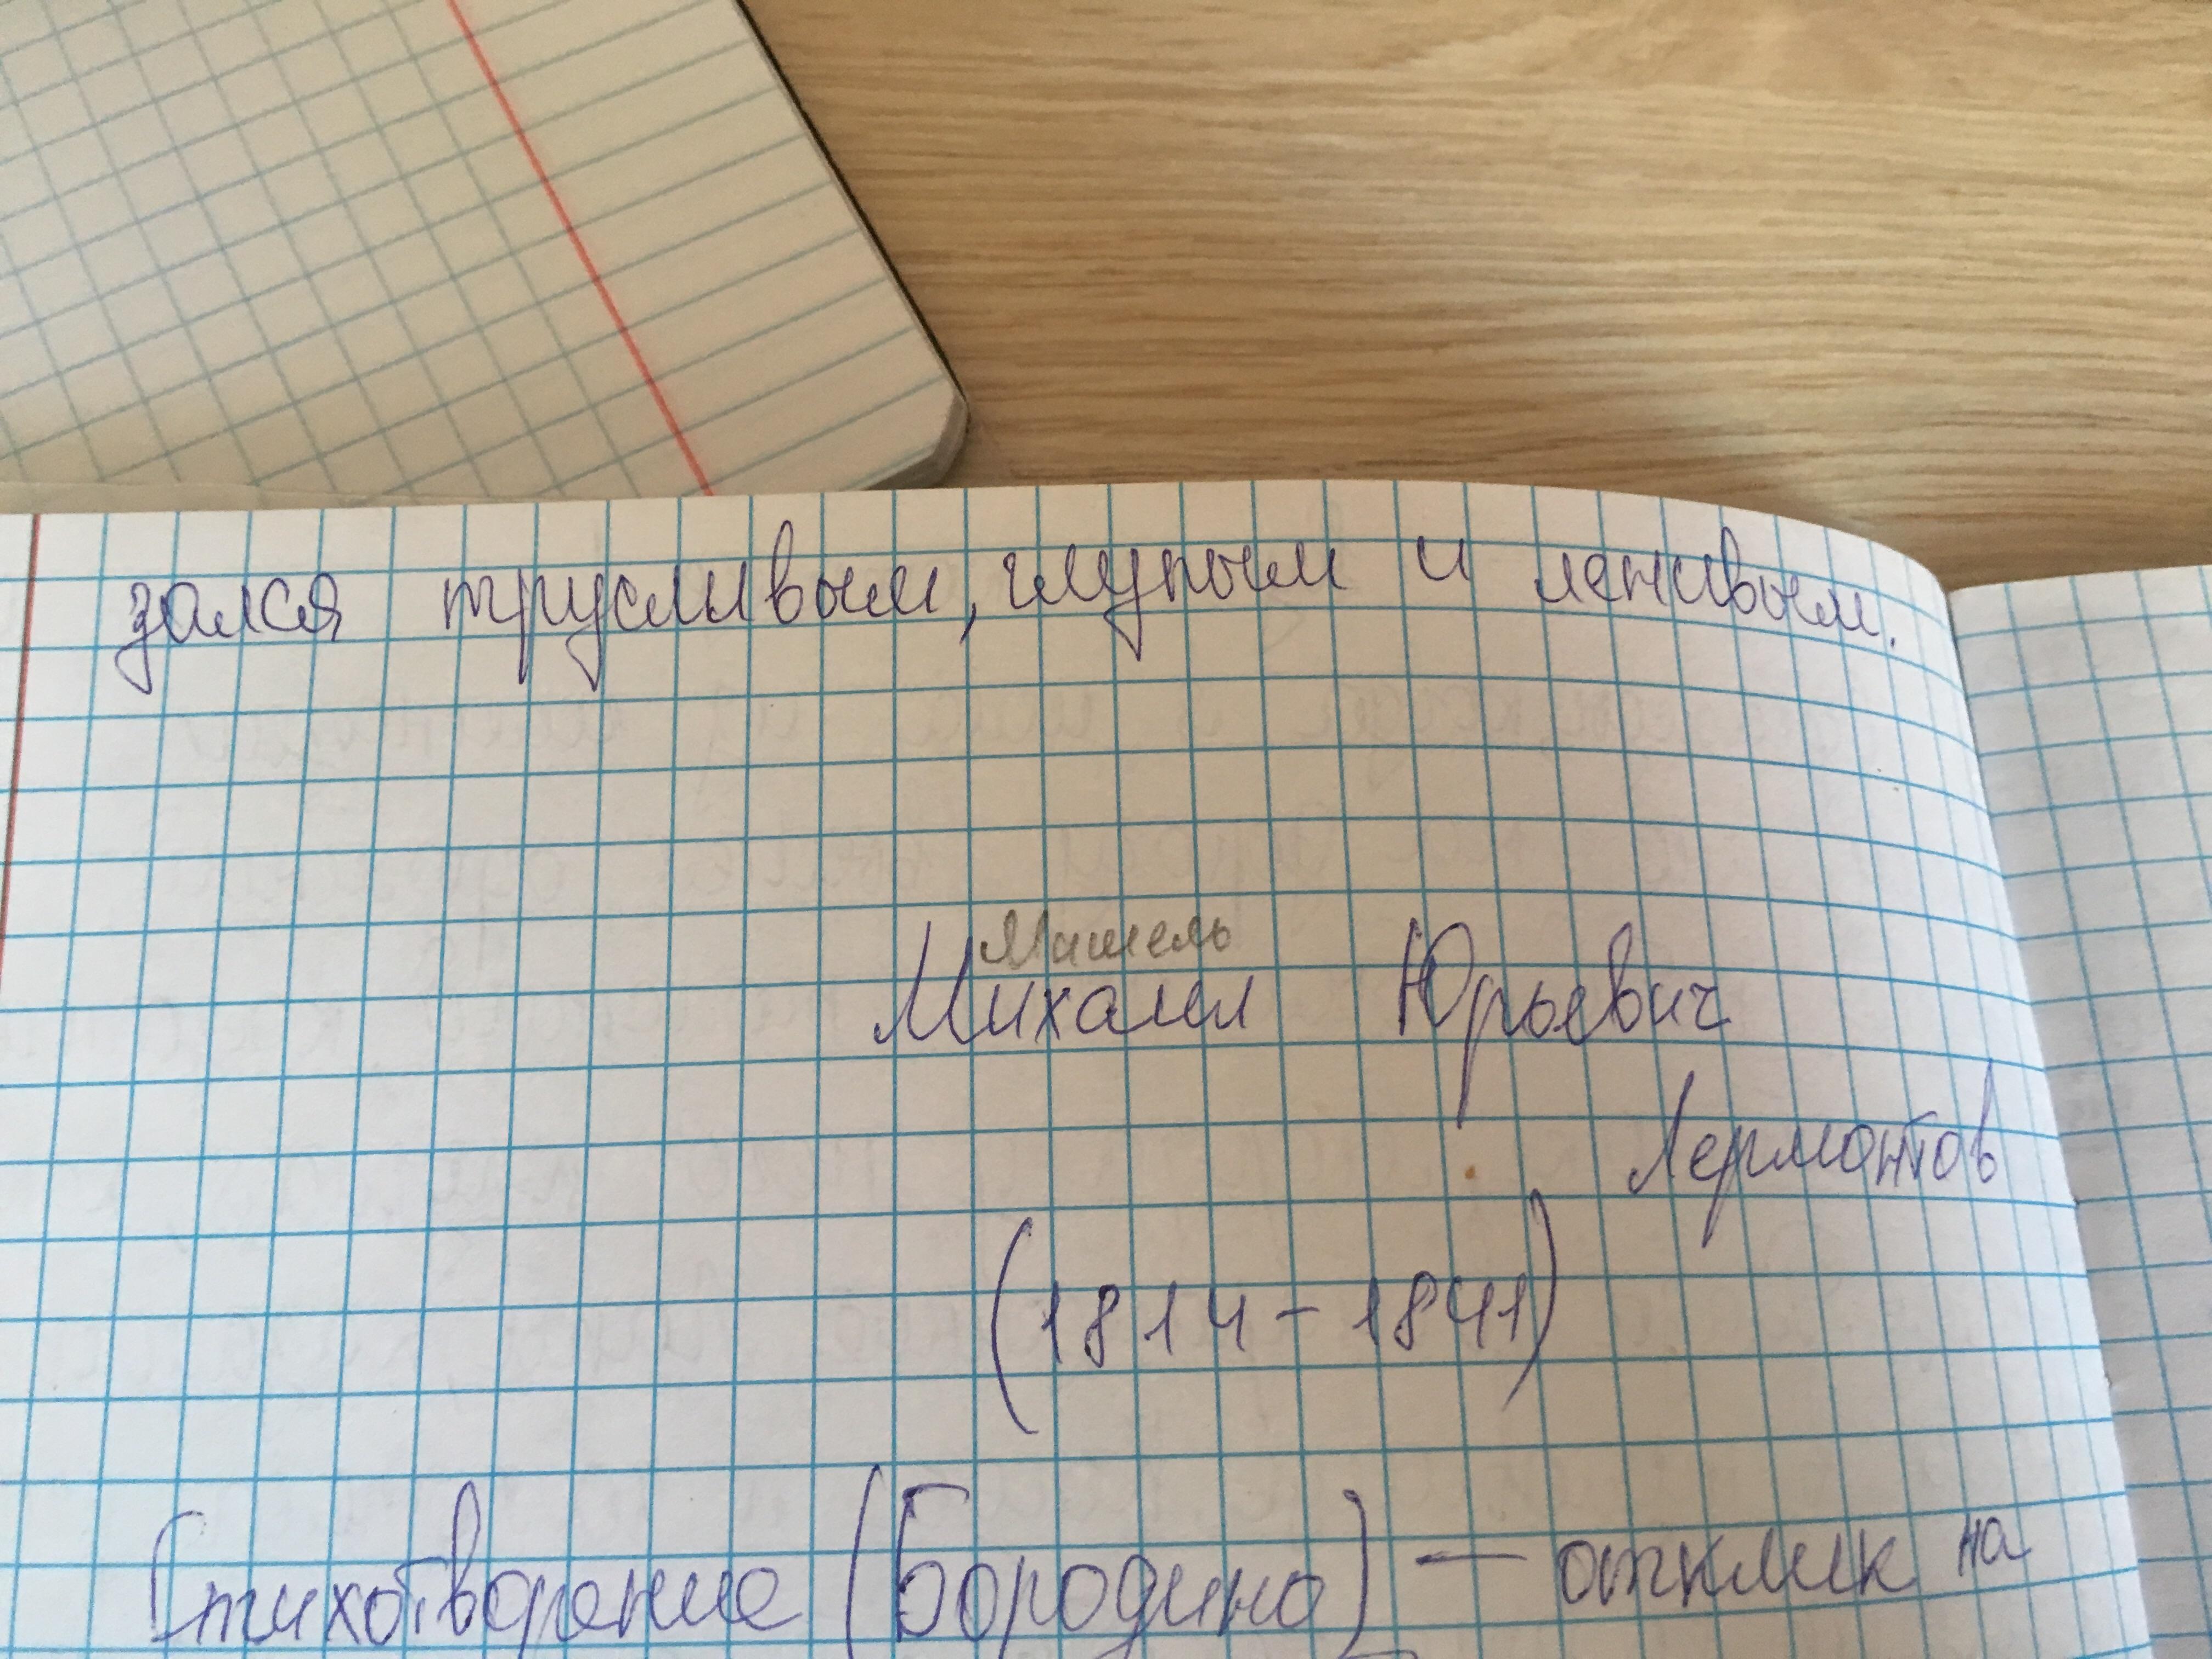 зался трусливым, глупым и ленивым.
Мишель
Михаил Юрьевич
Лермонтов
(1814-1841)
Стихотворение (Бородино) — отклик на